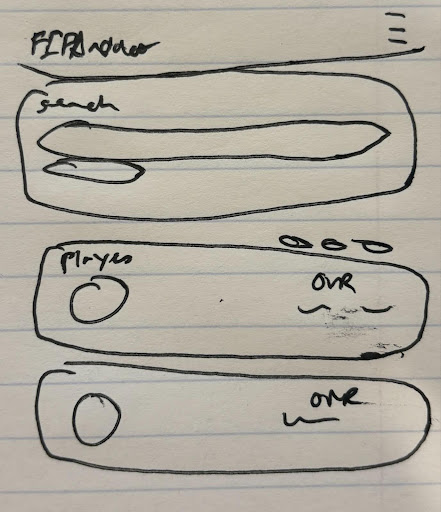 FIFAndder
search
players
OVR
OVR